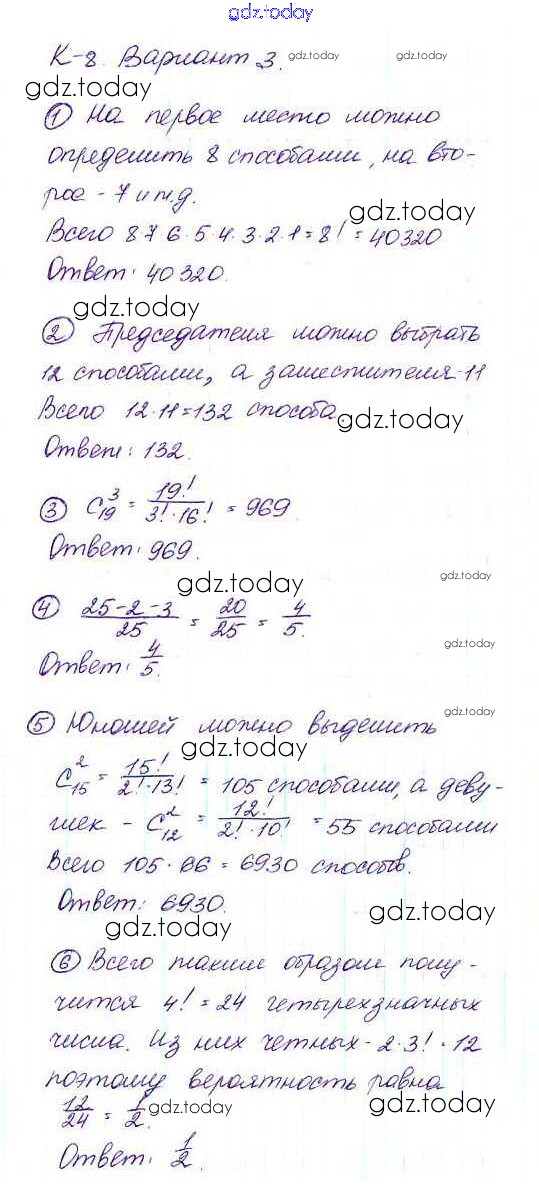 gdz.today
К-8. Вариант 3. gdz.today gdz.today
gdz.today
① На первое место можно
определить 8 способами, на вто-
рое - 7 и т.д.
gdz.today
Всего 8·7·6·5·4·3·2·1=8! =40320
Ответ: 40320.
gdz.today
② Председателя можно выбрать
12 способами, а заместителя-11
Всего 12·11=132 способа
gdz.today
Ответ: 132.
③ C₁₉³ = 19!/3!·16! = 969
Ответ: 969.
gdz.today gdz.today
④ 25-2-3/25 = 20/25 = 4/5.
gdz.today
Ответ: 4/5.
gdz.today
⑤ Юношей можно выделить
gdz.today
C₁₅² = 15!/2!·13! = 105 способами, а деву-
шек - C₁₂² = 12!/2!·10! = 55 способами
Всего 105·66 = 6930 способов.
Ответ: 6930.
gdz.today
gdz.today
⑥ Всего таким образом полу-
чится 4! = 24 четырехзначных
gdz.today
числа. Из них четных - 2·3! = 12
поэтому вероятность равна
12/24 = 1/2. gdz.today gdz.today
Ответ: 1/2.